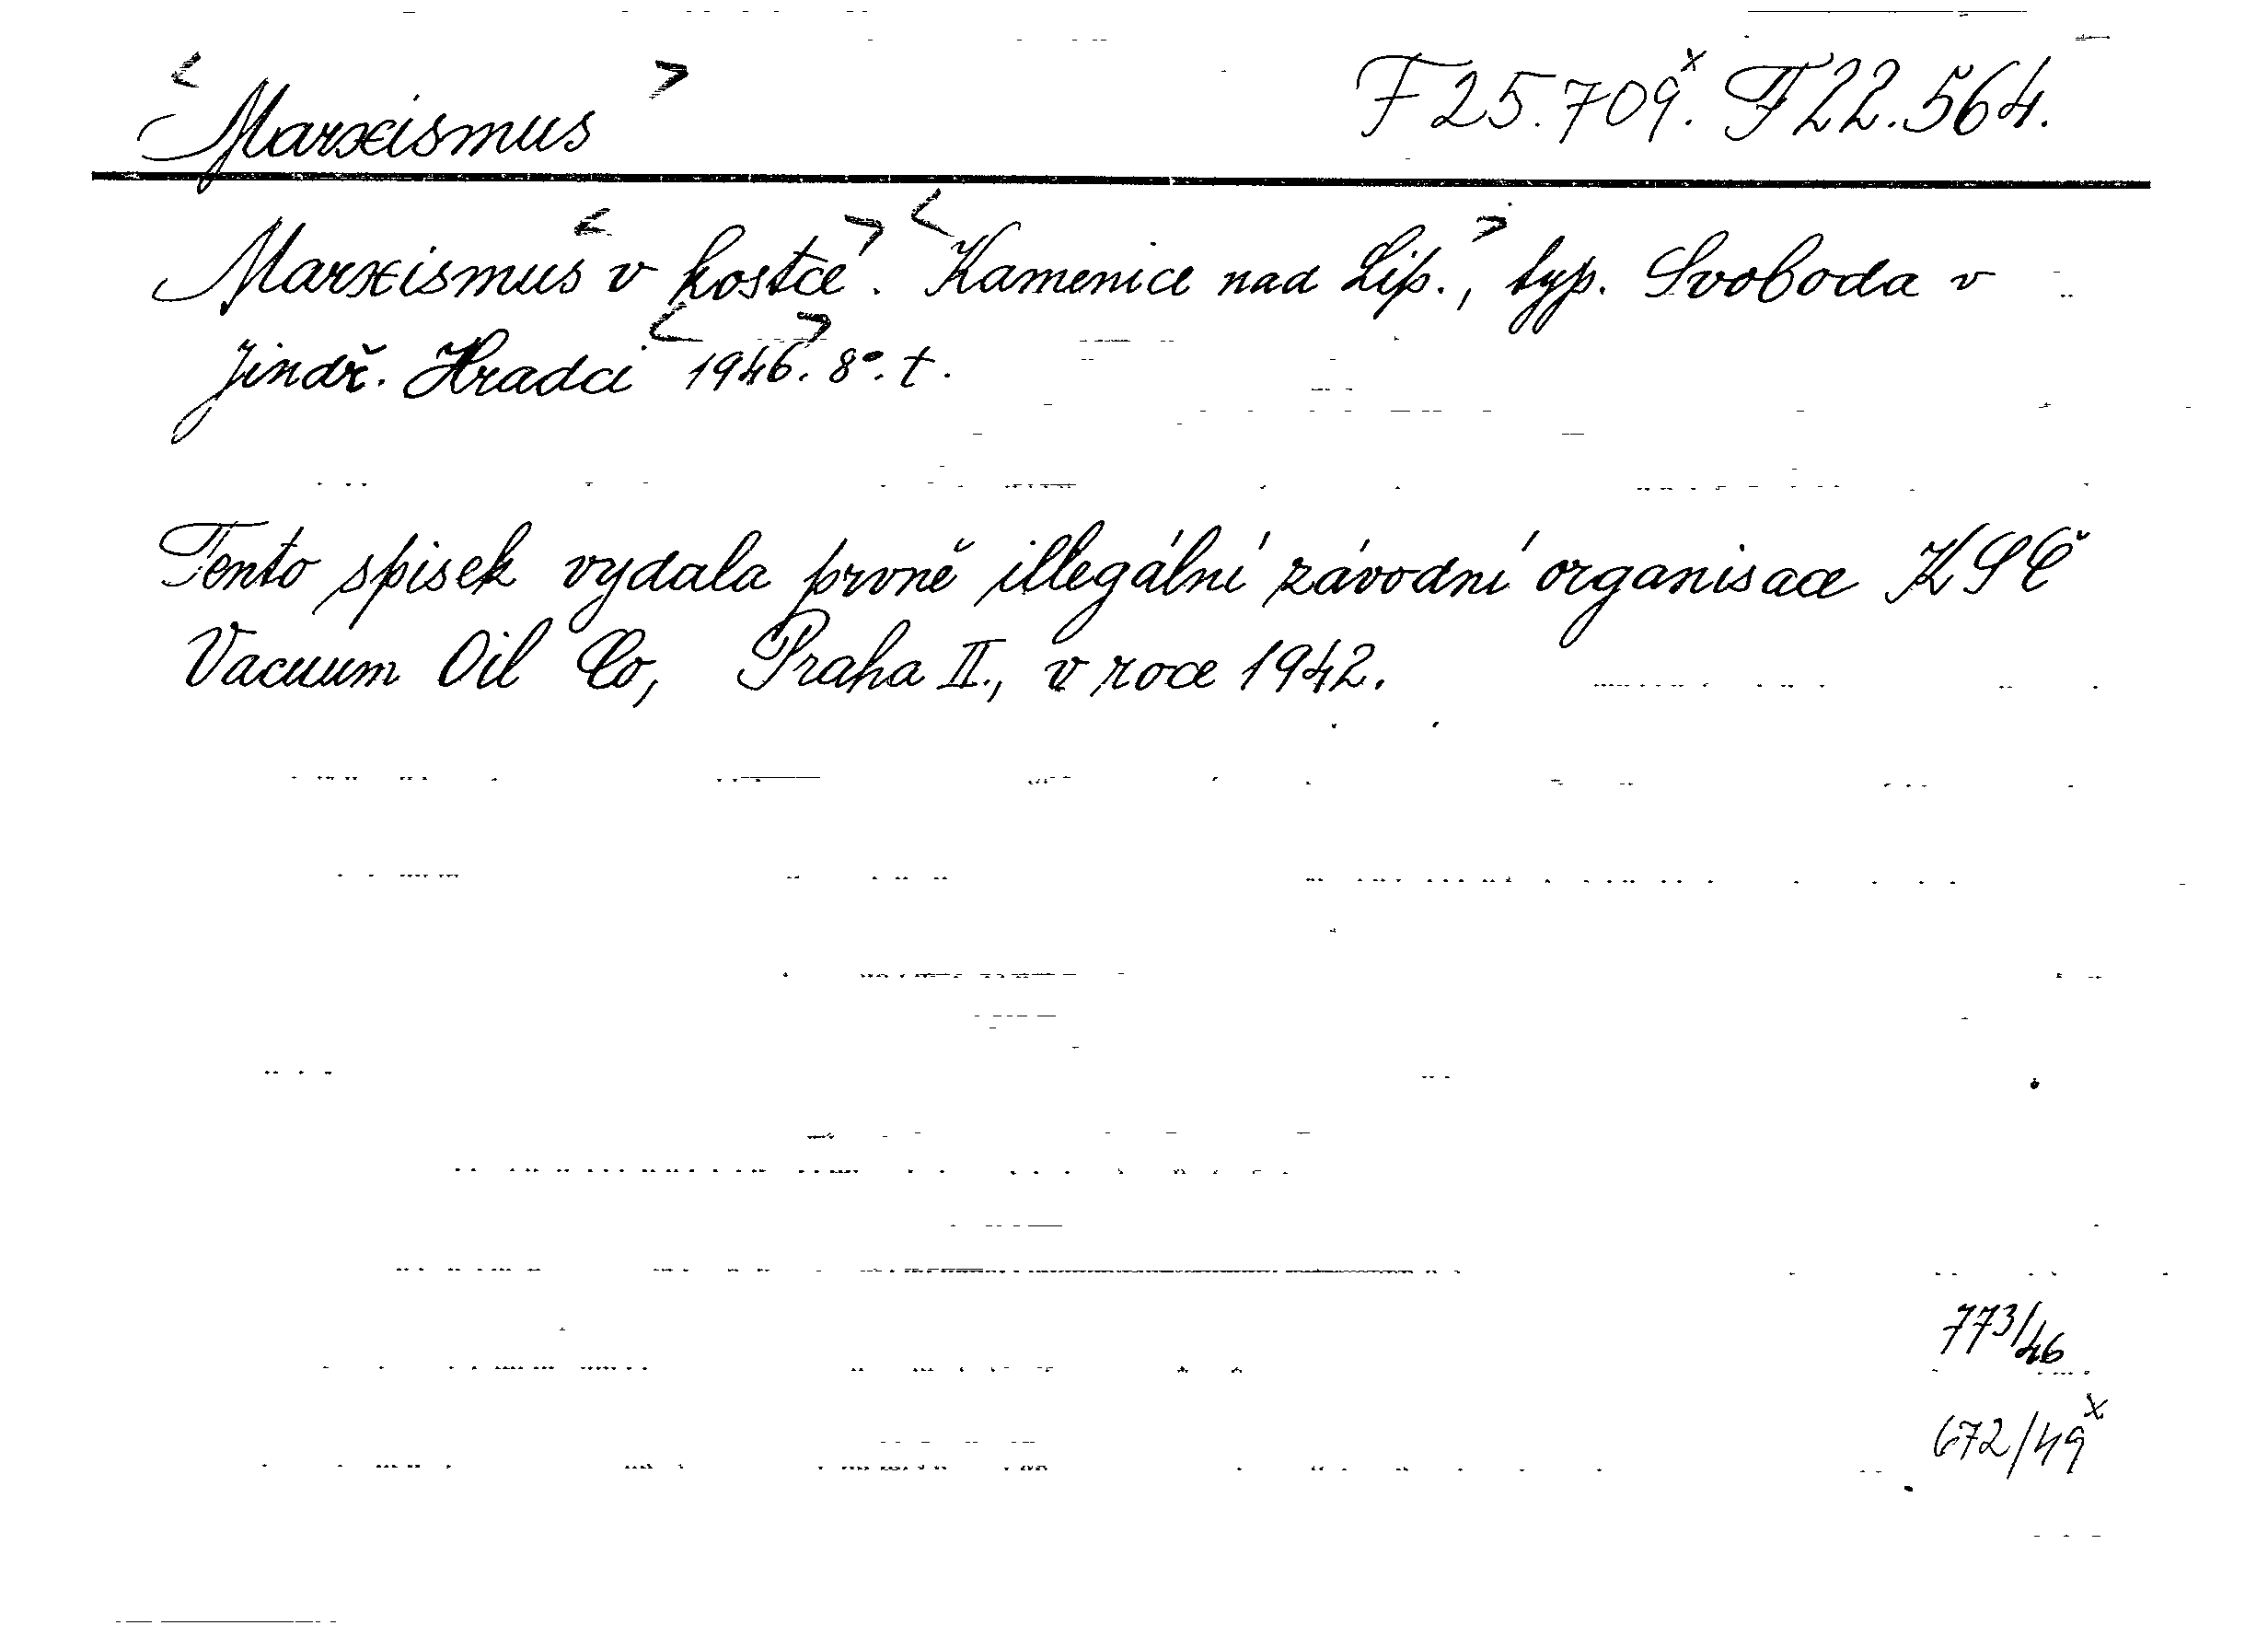 <Marxismus> F 25.709.ˣ F 22.564.
Marxismus <v kostce>. <Kamenice nad Lip.>, typ. Svoboda v
Jindř. Hradci <1946>. 8°. t.
Tento spisek vydala prvně illegální závodní organisace KSČ
Vacuum Oil Co, Praha II., v roce 1942.
773/46
672/49ˣ